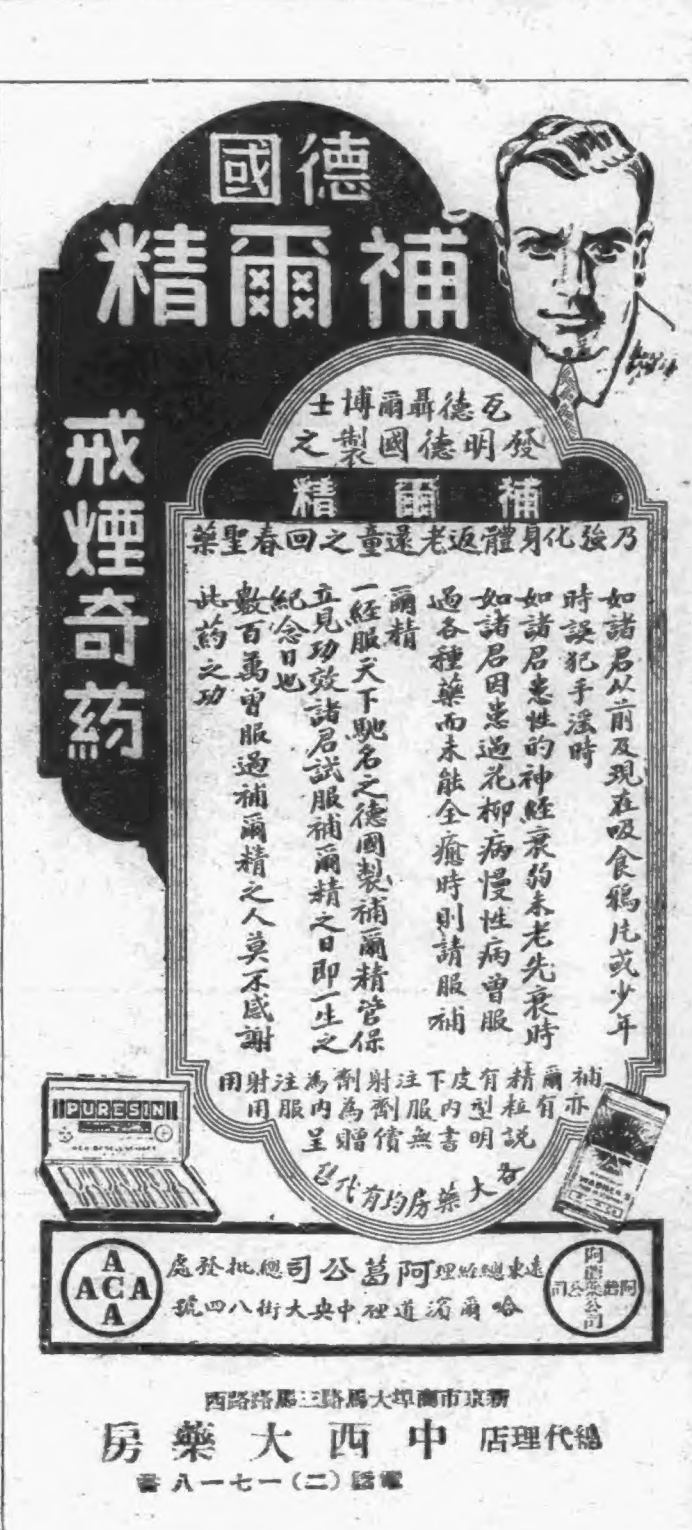 德國
補爾精
戒煙奇葯
瓦德聶爾博士
發明德國製之
補爾精
乃強化身體返老還童之回春聖藥
如諸君以前及現在吸食鴉片或少年
時誤犯手淫時
如諸君患性的神經衰弱未老先衰時
如諸君因患過花柳病慢性病曾服
過各種藥而未能全癒時則請服補
爾精
一經服天下馳名之德國製補爾精管保
立見功效諸君試服補爾精之日即一生之
紀念日也
數百萬曾服過補爾精之人莫不感謝
此葯之功
補爾精有皮下注射劑為注射用
亦有粒型內服劑為內服用
說明書無償贈呈
各大藥房均有代售
PURESIN
A
ACA
A
遠東總經理阿葛公司總批發處
哈爾濱道裡中央大街八四號
新京市商埠大馬路三馬路路西
總代理店 中西大藥房
電話(二)一七一八番